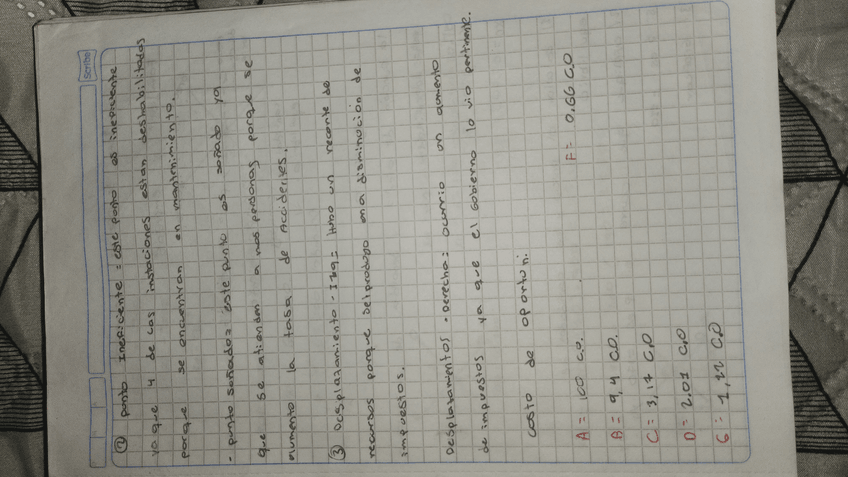 scribe
② punto Ineficiente: este punto es ineficiente
ya que 4 de las instaciones estan deshabilitadas
porque se encuentran en mantenimiento.
- punto soñado= este punto es soñado ya
que se atienden a mas personas porque se
aumento la tasa de Accidentes.
③ Desplazamiento - Izq= Hubo un recorte de
recursos porque se produjo una disminución de
impuestos.
Desplazamentos - Derecha= ocurrio un aumento
de impuestos ya que el gobierno lo vio pertinente.
costo de oportuni.
A = 100 C.O.
B = 9,4 C.O.
C = 3,17 C,O
D = 2.01 C,O
G = 1,22 C,O
F = 0,66 C,O